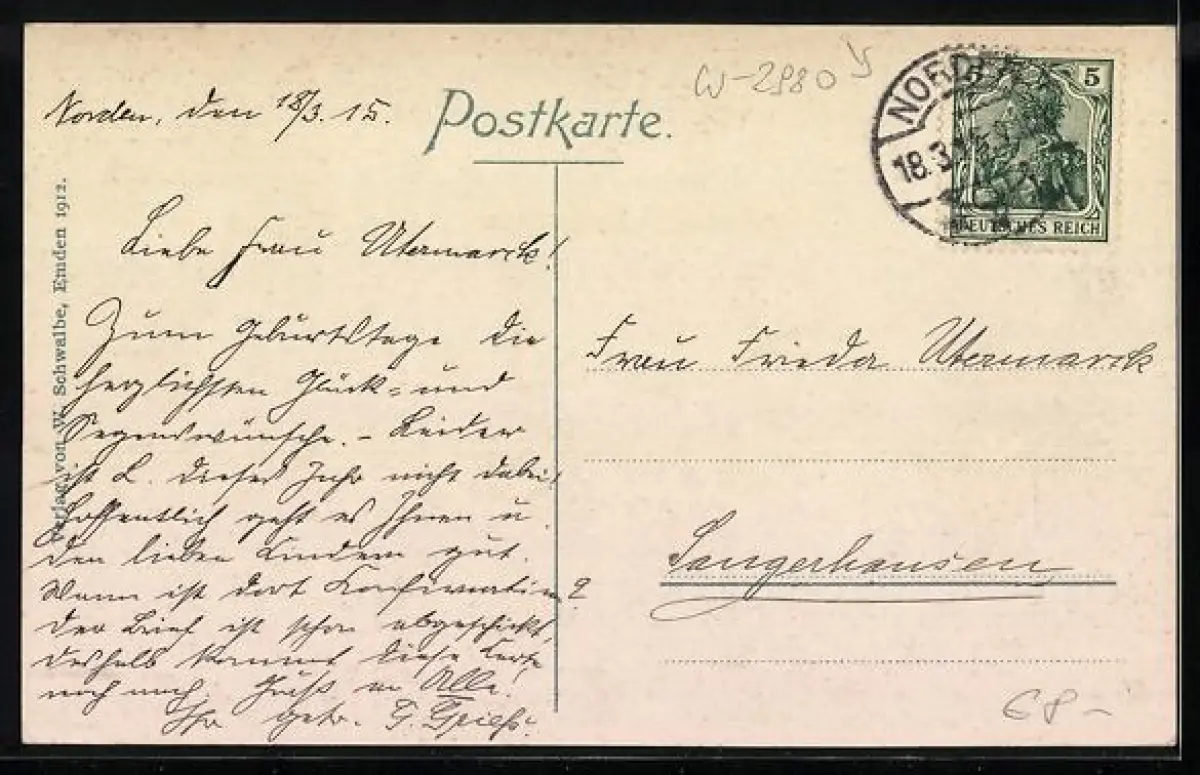 W-2980
Norden, den 18/3. 15.
Postkarte.
NORDEN
18.3.15
5
DEUTSCHES REICH
Verlag von W. Schwalbe, Emden 1912.
Liebe Frau Utermarck!
Zum Geburtstage die
herzlichsten Glück- und
Segenswünsche. – Leider
ist L. dieses Jahr nicht dabei.
Hoffentlich geht es Ihnen u.
den lieben Kindern gut.
Wann ist dort Konfirmation?
Der Brief ist schon abgeschickt,
deshalb kommt diese Karte
noch nach. Gruß an Alle!
Ihr getr.
Frau Frieda Utermarck
Sangerhausen
68–